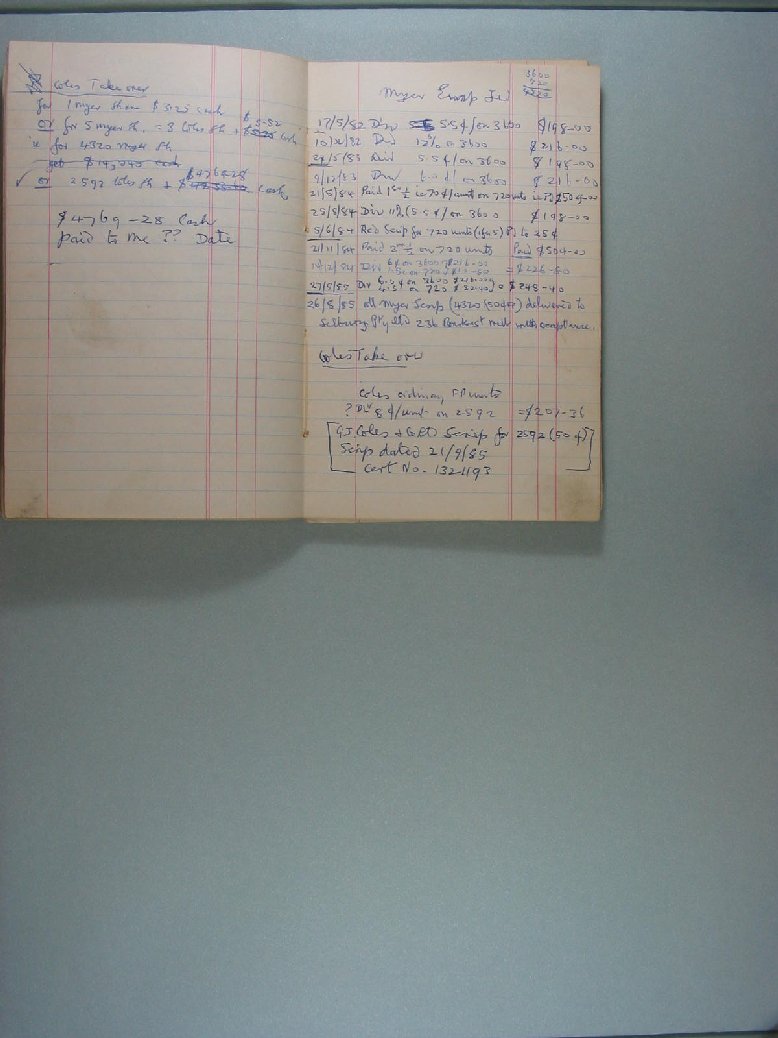 Coles Take over
for 1 myer share $3.25 cash
or for 5 myer sh. = 3 Coles sh + $5-52 cash
ie for 4320 myer sh
get $14,040 cash
or 2592 Coles sh + $4769-28 cash
$4769-28 Cash
paid to me ?? Date
3600
720
4320
Myer Emp Ltd
17/5/82 Div 5.5¢/on 3600 $198-00
10/12/82 Div 12% on 3600 $216-00
24/5/83 Paid 5.5¢/on 3600 $198-00
9/12/83 Div 6.0¢/on 3600 $216-00
21/5/84 Paid 1st ½ ie 70¢/unit on 720 units ie Pd $504-00
25/5/84 Div 11% (5.5¢/on 3600 $198-00
5/6/84 Rec Scrip for 720 units (1 for 5) Pd to 25¢
21/11/84 Paid 2nd ½ on 720 units Paid $504-00
14/12/84 Div 6¢ on 3600 $216-00
on 720 $10-80 = $226-80
27/5/85 Div 6.0¢ on 3600 $216-00
on 720 $32-40 = $248-40
26/8/85 all Myer Scrip (4320 (50¢)) delivered to
Selbourg Pty Ltd 236 with acceptance.
Coles Take over
Coles ordinary FP units
? Div 8¢/unit on 2592 = $207-36
GJ Coles & Co Ltd Scrip for 2592 (50¢)
Scrip dated 21/9/85
Cert No. 1324193